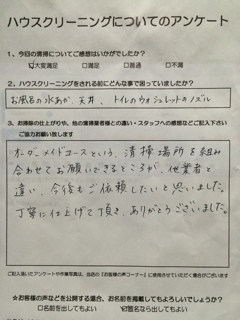 ハウスクリーニングについてのアンケート
1、今回の清掃についてご感想はいかがでしたか？
☑大変満足　□満足　□普通　□不満
2、ハウスクリーニングをされる前にどんな事で困っていましたか？
お風呂の水あか、天井、トイレのウォシュレットのノズル
3、お掃除の仕上がりや、他の清掃業者様との違い・スタッフへの感想などご記入下さい
ご協力お願い致します
オーダーメイドコースという、清掃場所を組み
合わせてお願いできるところが、他業者と
違い、今後もご依頼したいと思いました。
丁寧に仕上げて頂き、ありがとうございました。
ご記入頂いたアンケートや作業写真は、当店の『お客様の声コーナー』に使用させていただく場合がございます
☆お客様の声などを公開する場合、お名前を掲載してもよろしいでしょうか？
□名前を出してもよい　☑匿名なら出してもよい